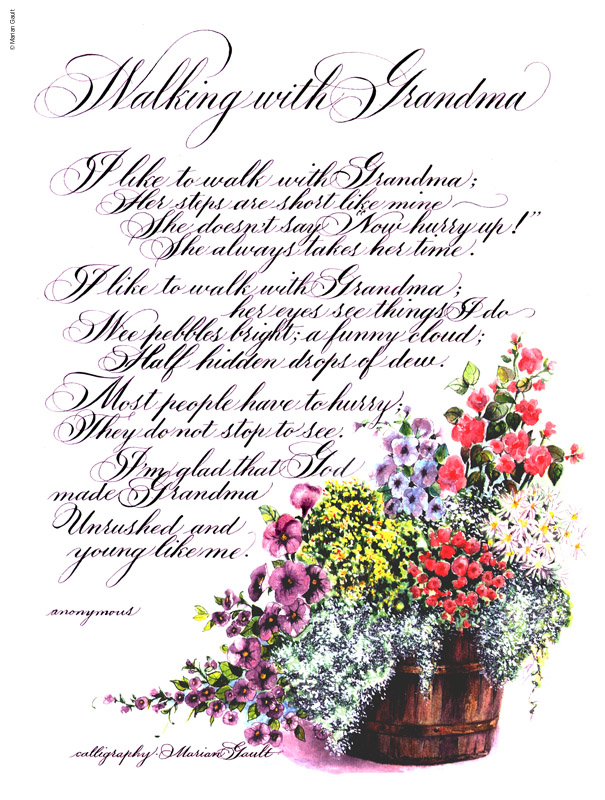 © Marian Gault
Walking with Grandma
I like to walk with Grandma;
Her steps are short like mine
She doesn't say "Now hurry up!"
She always takes her time.
I like to walk with Grandma;
her eyes see things I do
Wee pebbles bright; a funny cloud;
Half hidden drops of dew.
Most people have to hurry;
They do not stop to see.
I'm glad that God
made Grandma
Unrushed and
young like me.
anonymous
calligraphy: Marian Gault